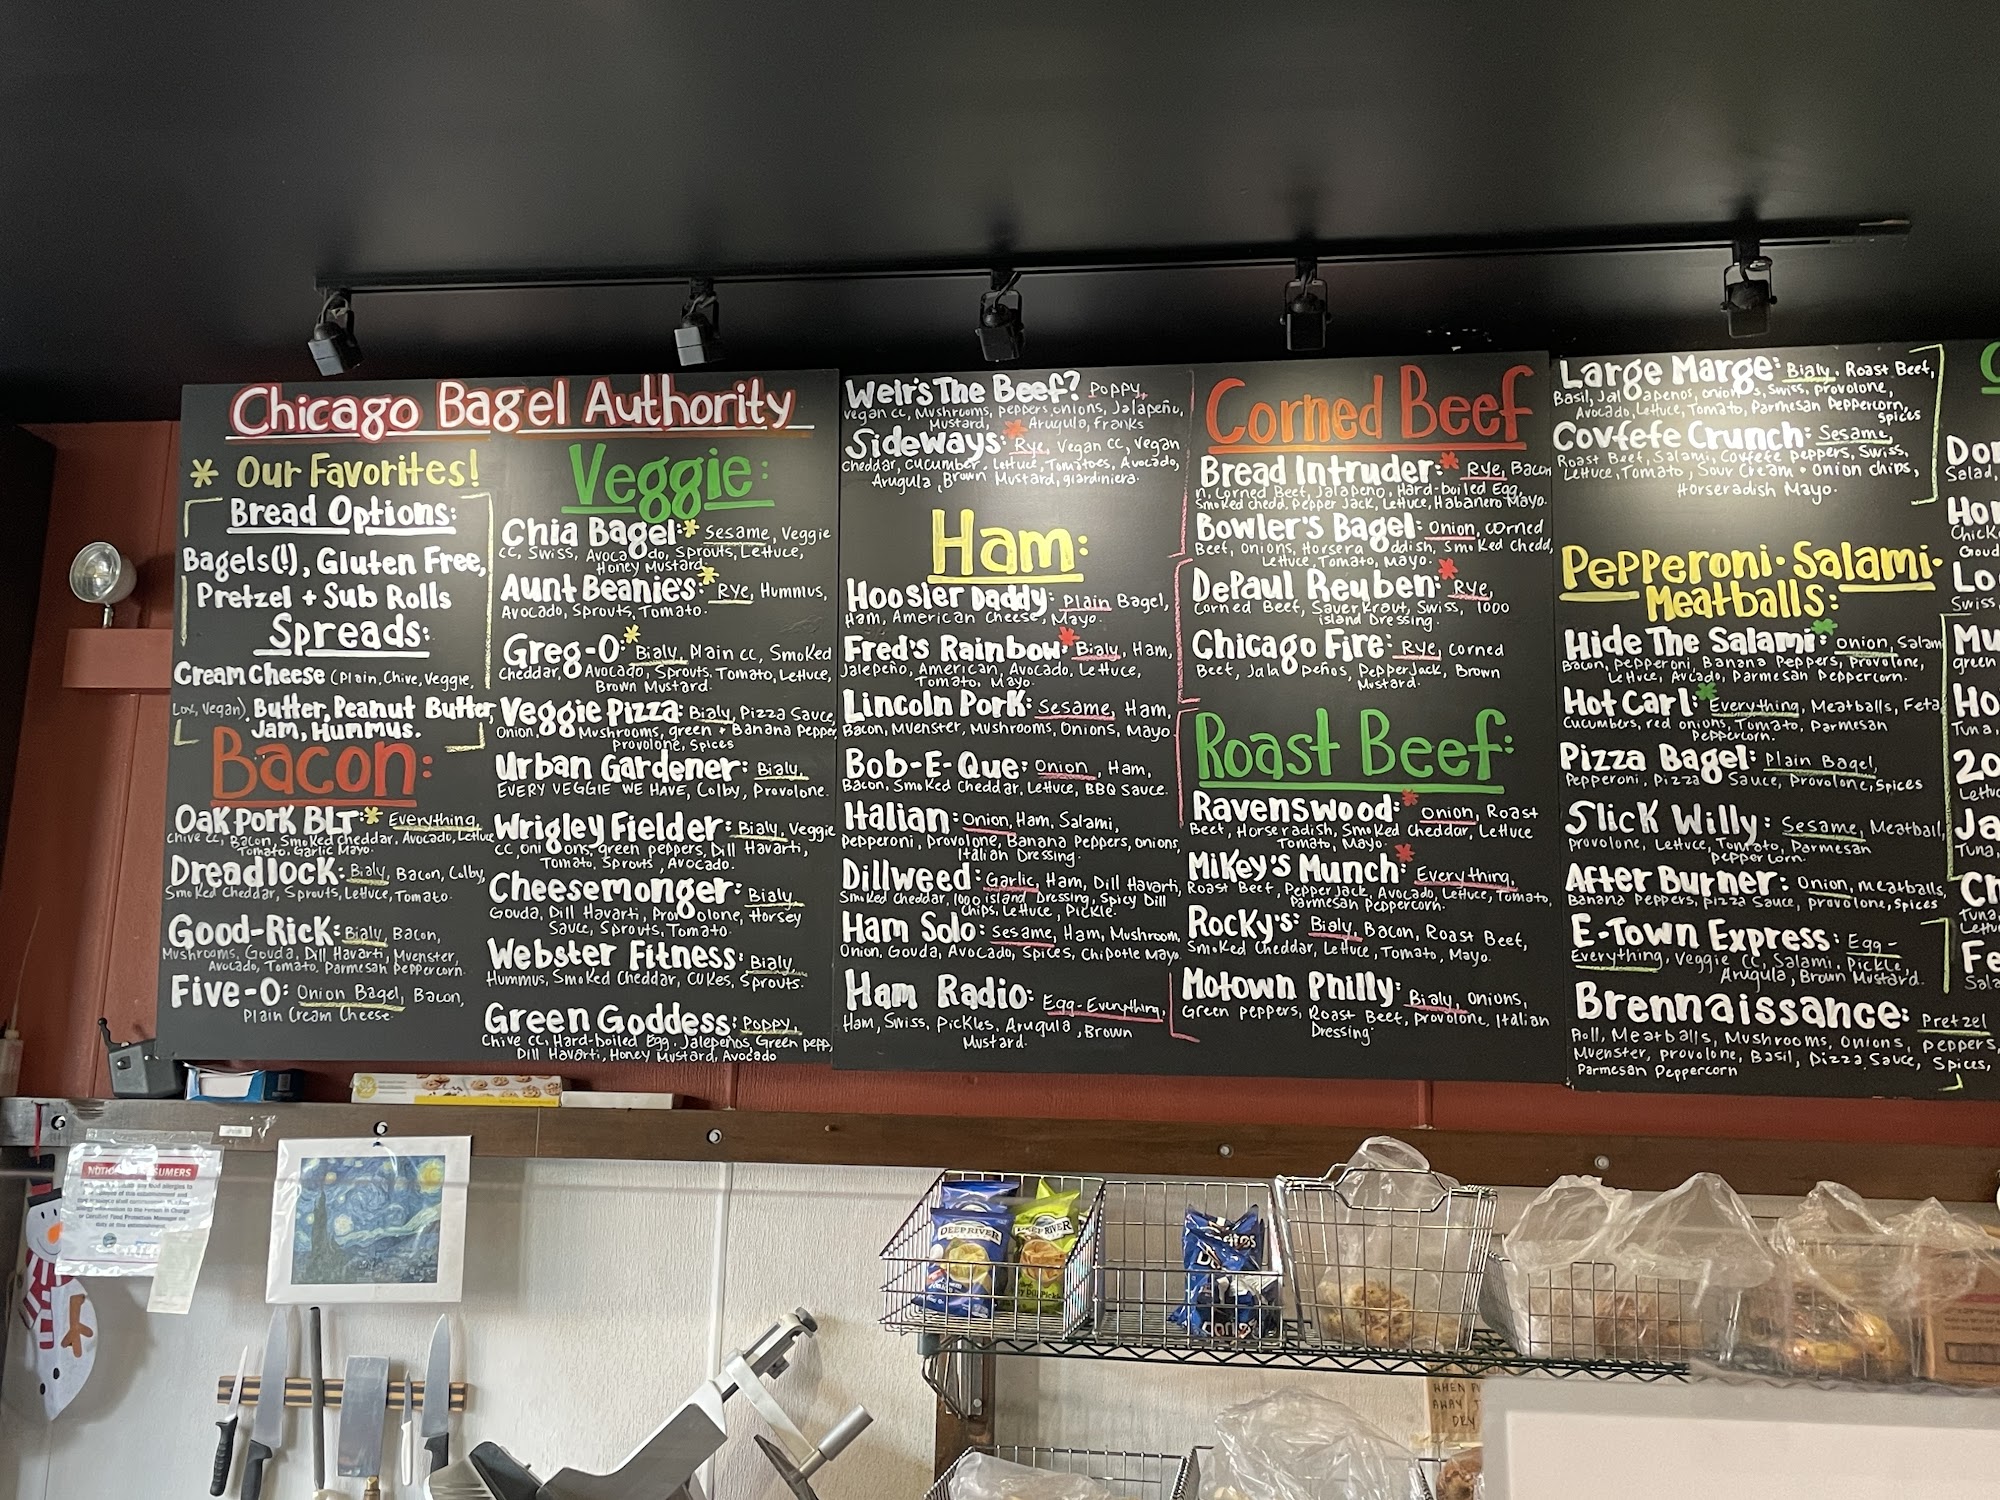 Chicago Bagel Authority
* Our Favorites!
Bread Options:
Bagels(!), Gluten Free,
Pretzel + Sub Rolls
Spreads:
Cream Cheese (Plain, Chive, Veggie,
Lox, Vegan). Butter, Peanut Butter,
Jam, Hummus.
Bacon:
Oak Pork BLT:* Everything,
Chive cc, Bacon, Smoked Cheddar, Avocado, Lettuce
Tomato, Garlic Mayo.
Dreadlock: Bialy, Bacon, Colby,
Smoked Cheddar, Sprouts, Lettuce, Tomato.
Good-Rick: Bialy, Bacon,
Mushrooms, Gouda, Dill Havarti, Muenster,
Avocado, Tomato, Parmesan Peppercorn.
Five-O: Onion Bagel, Bacon,
Plain Cream Cheese
Veggie:
Chia Bagel:* Sesame, Veggie
cc, Swiss, Avocado, Sprouts, Lettuce,
Honey Mustard.
Aunt Beanie's:* Rye, Hummus,
Avocado, Sprouts, Tomato.
Greg-O:* Bialy, Plain cc, Smoked
Cheddar, Avocado, Sprouts, Tomato, Lettuce,
Brown Mustard.
Veggie Pizza: Bialy, Pizza Sauce,
Onion, Mushrooms, green + Banana Pepper,
Provolone, Spices
Urban Gardener: Bialy,
EVERY VEGGIE WE HAVE, Colby, Provolone.
Wrigley Fielder: Bialy, Veggie
CC, onions, green peppers, Dill Havarti,
Tomato, Sprouts, Avocado.
Cheesemonger: Bialy,
Gouda, Dill Havarti, Provolone, Horsey
Sauce, Sprouts, Tomato.
Webster Fitness: Bialy,
Hummus, Smoked Cheddar, Cukes, Sprouts.
Green Goddess: Poppy,
Chive CC, Hard-Boiled Egg, Jalepeños, Green pepp,
Dill Havarti, Honey Mustard, Avocado
Weir's The Beef? Poppy,
Vegan cc, Mushrooms, peppers, onions, Jalapeño,
Mustard, Arugula, Franks
Sideways:* Rye, Vegan CC, Vegan
Cheddar, Cucumber, Lettuce, Tomatoes, Avocado,
Arugula, Brown Mustard, giardiniera.
Ham:
Hoosier Daddy: Plain Bagel,
Ham, American Cheese, Mayo.
Fred's Rainbow:* Bialy, Ham,
Jalepeño, American, Avocado, Lettuce,
Tomato, Mayo.
Lincoln Pork: Sesame, Ham,
Bacon, Muenster, Mushrooms, Onions, Mayo
Bob-E-Que: Onion, Ham,
Bacon, Smoked Cheddar, Lettuce, BBQ Sauce.
Italian: Onion, Ham, Salami,
Pepperoni, Provolone, Banana Peppers, onions,
Italian Dressing.
Dillweed: Garlic, Ham, Dill Havarti,
Smoked Cheddar, 1000 island Dressing, Spicy Dill
Chips, Lettuce, Pickle.
Ham Solo: Sesame, Ham, Mushroom,
Onion, Gouda, Avocado, Spices, Chipotle Mayo.
Ham Radio: Egg-Everything,
Ham, Swiss, Pickles, Arugula, Brown
Mustard.
Corned Beef
Bread Intruder:* Rye, Bacon
n, Corned Beef, Jalapeño, Hard-boiled Egg,
Smoked Chedd, Pepper Jack, Lettuce, Habanero Mayo.
Bowler's Bagel: Onion, Corned
Beef, Onions, Horseradish, Smoked Chedd,
Lettuce, Tomato, Mayo.
DePaul Reuben:* Rye,
Corned Beef, Sauerkraut, Swiss, 1000
island Dressing.
Chicago Fire: Rye, Corned
Beef, Jalapeños, PepperJack, Brown
Mustard.
Roast Beef:
Ravenswood:* Onion, Roast
Beef, Horseradish, Smoked Cheddar, Lettuce
Tomato, Mayo.
Mikey's Munch:* Everything,
Roast Beef, PepperJack, Avocado, Lettuce, Tomato,
Parmesan Peppercorn.
Rocky's: Bialy, Bacon, Roast Beef,
Smoked Cheddar, Lettuce, Tomato, Mayo.
Motown Philly: Bialy, Onions,
Green peppers, Roast Beef, Provolone, Italian
Dressing
Large Marge: Bialy, Roast Beef,
Basil, Jalapenos, onions, Swiss, provolone,
Avocado, Lettuce, Tomato, Parmesan Peppercorn,
Spices
Covfefe Crunch: Sesame,
Roast Beef, Salami, Covfefe peppers, Swiss,
Lettuce, Tomato, Sour Cream + onion chips,
Horseradish Mayo.
Pepperoni · Salami ·
Meatballs:
Hide The Salami:* Onion, Salam
Bacon, Pepperoni, Banana Peppers, Provolone,
Lettuce, Avcado, Parmesan Peppercorn.
Hot Carl:* Everything, Meatballs, Feta,
Cucumbers, red onions, Tomato, Parmesan
Peppercorn.
Pizza Bagel: Plain Bagel,
Pepperoni, Pizza Sauce, Provolone, Spices
Slick Willy: Sesame, Meatball,
Provolone, Lettuce, Tomato, Parmesan
Peppercorn.
After Burner: Onion, Meatballs,
Banana Peppers, Pizza Sauce, Provolone, Spices
E-Town Express: Egg-
Everything, Veggie CC, Salami, Pickle,
Arugula, Brown Mustard.
Brennaissance: Pretzel
Roll, Meatballs, Mushrooms, Onions, Peppers,
Muenster, Provolone, Basil, Pizza Sauce, Spices,
Parmesan Peppercorn
Salad,
Swiss,
green
Tuna,
DEEP RIVER
DEEP RIVER